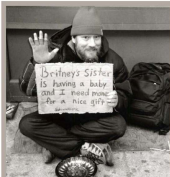 Britneys Sister
is having a baby
and I need money
for a nice gift